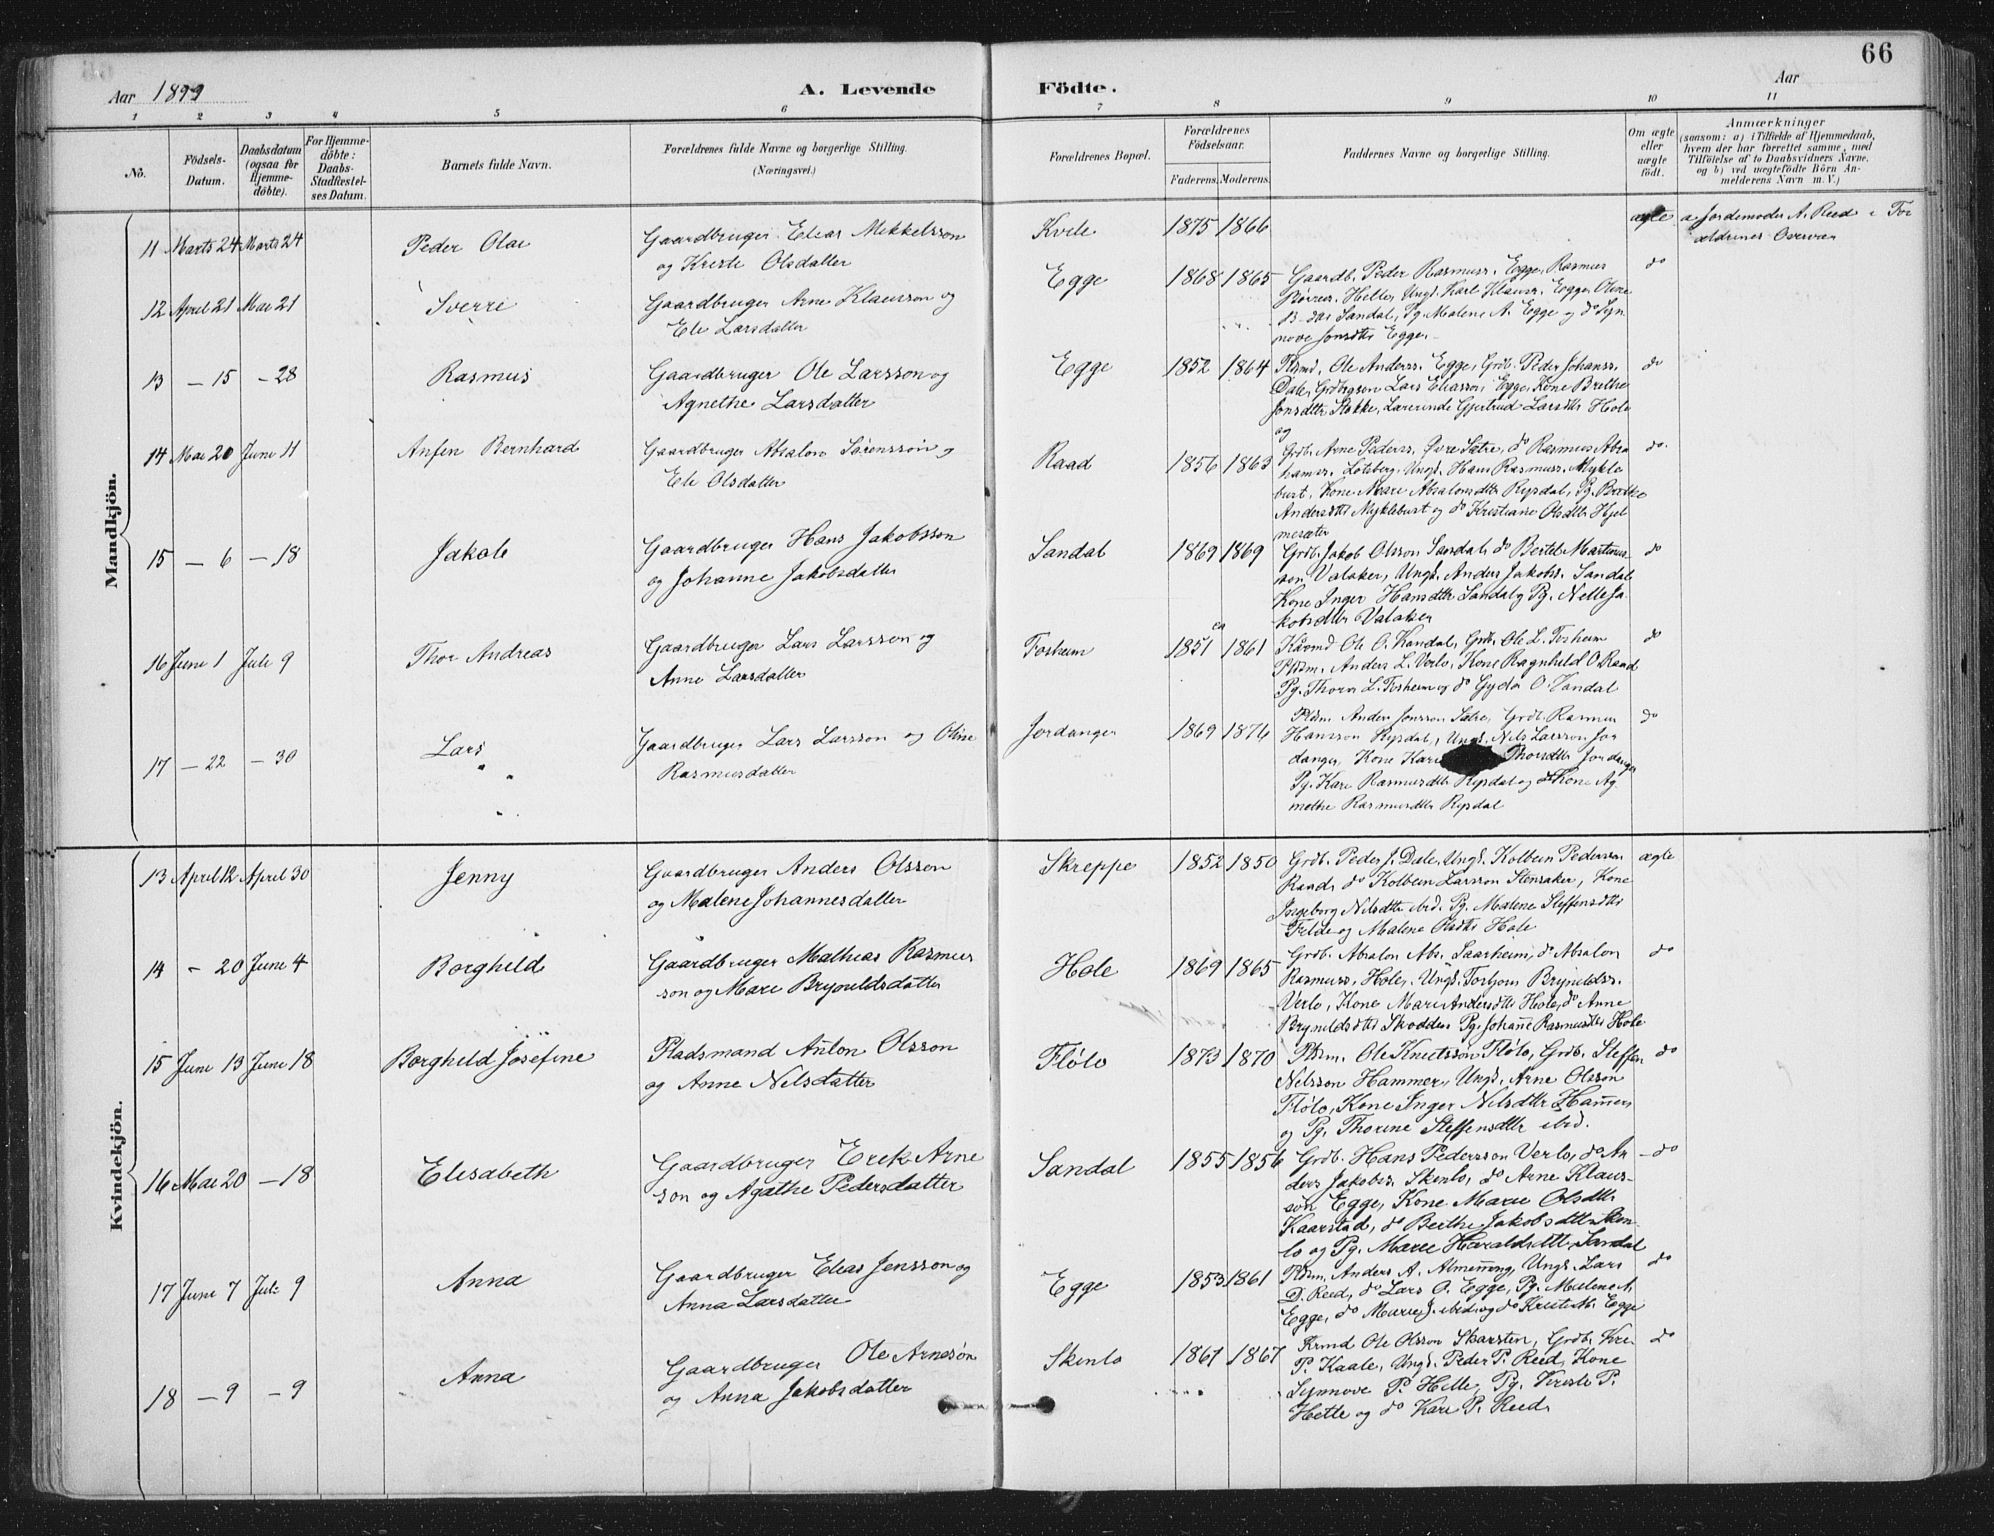 66
Aar 1899
A. Levende Födte.
Aar
1 2 3 4 5 6 7 8 9 10 11
No.
Födsels-Datum.
Daabsdatum (ogsaa for Hjemmedöbte).
For Hjemmedöbte: Daabs-Stadfæstelses Datum.
Barnets fulde Navn.
Forældrenes fulde Navne og borgerlige Stilling. (Næringsvei.)
Forældrenes Bopæl.
Forældrenes Födselsaar.
Faderens. Moderens.
Faddernes Navne og borgerlige Stilling.
Om ægte eller uægte födt.
Anmærkninger (saasom: a) i Tilfælde af Hjemmedaab, hvem der har forrettet samme, med Tilföielse af to Daabsvidners Navne, og b) ved uægtefödte Börn Anmelderens Navn m. V.)
Mandkjön.
11 Marts 24 Marts 24 Peder Olai Gaardbruger Elias Mikkelsson Kvile 1875 1866 ægte a Jordemoder A. Reed i For
og Kristi Olsdatter ældrenes Overvær
12 April 21 Mai 21 Sverre Gaardbruger Arne Klausson og Egge 1868 1865 Gaardb. Peder Rasmuss. Egge, Rasmus do
Eli Larsdatter Helle, Ungk. Karl Klauss. Egge, Oline
Sandal, Pg. Malene A. Egge og do Syn
nove Jonsdtr Egge.
13 – 15 – 28 Rasmus Gaardbruger Ole Larsson og Egge 1852 1864 Plsmd. Ole Anderss. Egge, Grdb. Peder Johanss. do
Agnethe Larsdatter Dale, Grdbrgson Lars Eliasson Egge, Kone Brithe
Jonsdtr Stokke, Lærerinde Gjertrud Larsdtr Hole
og
14 Mai 20 Juni 11 Anfin Bernhard Gaardbruger Absalon Sørensson og Raad 1856 1863 Grdb. Arne Pederss. Øvre Sætre, do Rasmus Abra do
Eli Olsdatter hamss. Løteberg, Ungk. Hans Rasmuss. Mykle
bust, Kone Mari Absalonsdtr Rypdal, Pg. Berthe
Andersdtr Myklebust og do Kristiane Olsdtr Hjel
mesæter
15 – 6 – 18 Jakob Gaardbruger Hans Jakobsson Sandal 1869 1869 Grdb. Jakob Olsson Sandal, do Bertel Martinus do
og Johanne Jakobsdatter son Valaker, Ungk. Anders Jakobs. Sandal
Kone Inger Hansdtr Sandal og Pg. Nille Ja
kobsdtr Valaker
16 Juni 1 Juli 9 Thor Andreas Gaardbruger Lars Larsson og Fosheim 1851 ca 1861 Kaarmd Ole O. Sandal, Grdb. Ole L. Fosheim do
Anne Larsdatter Pldsm. Anders L. Verlo, Kone Ragnhild O Raad
Pg. Thora L. Fosheim og do Gyda O. Sandal
17 – 22 – 30 Lars Gaardbruger Lars Larsson og Oline Jordanger 1869 1876 Pldsm Anders Jonsson Sætre, Grdb. Rasmus do
Rasmusdatter Hansson Rypdal, Ungk. Nils Larsson Jor
danger, Kone Kari Thorsdtr Jordanger
Pg. Kari Rasmusdtr Rypdal og do Kone Ag
nethe Rasmusdtr Rypdal
Kvindekjön.
13 April 12 April 30 Jenny Gaardbruger Anders Olsson Skreppe 1852 1850 Grdb. Peder J. Dale, Ungk. Kolbein Pederssn ægte
og Malene Johannesdatter Raad, do Kolbein Larsson Stensaker, Kone
Ingeborg Nilsdtr ibid. Pg. Malene Steffensdtr
Felde og Malene Olsdtr Hole
14 – 20 Juni 4 Borghild Gaardbruger Mathias Rasmus Hole 1869 1865 Grdb. Absalon Abs. Saasheim, do Absalon do
son og Mari Brynildsdatter Rasmuss. Hole, Ungk. Torbjørn Brynildss.
Verlo, Kone Mari Andersdtr Hole, do Anne
Brynildsdtr Skodden, Pg. Johanne Rasmusdtr Hole
15 Juni 13 Juni 18 Borghild Josefine Pladsmand Anton Olsson Flølo 1873 1870 Pldsm. Ole Knutsson Flølo, Grdb. Steffen do
og Anne Nilsdatter Nilsson Hammer, Ungk. Arne Olsson
Flølo, Kone Inger Nilsdtr Hammer
og Pg. Thorine Steffensdtr ibid.
16 Mai 20 – 18 Elisabeth Gaardbruger Erik Arne Sandal 1855 1856 Grdb. Hans Pedersson Verlo, do An – do
son og Agathe Pedersdatter ders Jakobss. Skinlo, do Arne Klaus-
son Egge, Kone Marie Olsdtr
Kaarstad, do Berthe Jakobsdtr Skin-
lo og Pg. Marie Haraldsdtr Sandal
17 Juni 7 Juli 9 Anna Gaardbruger Elias Jensson og Egge 1853 1861 Pldsm. Anders A. Almenning, Ungk. Lars do
Anna Larsdatter D. Reed, do Lars O. Egge, Pg. Malene A.
Egge, do Marie J. ibid og do Kristi M. Egge
18 – 9 – 9 Anna Gaardbruger Ole Arnesøn Skinlo 1861 1867 Krmd Ole Olsson Skarsten, Grdb. do
og Anna Jakobsdatter P. Kaale, Ungk. Peder P. Reed, Kone
Synnove P. Helle, Pg. Kristi P.
Helle og do Kari P. Reed.